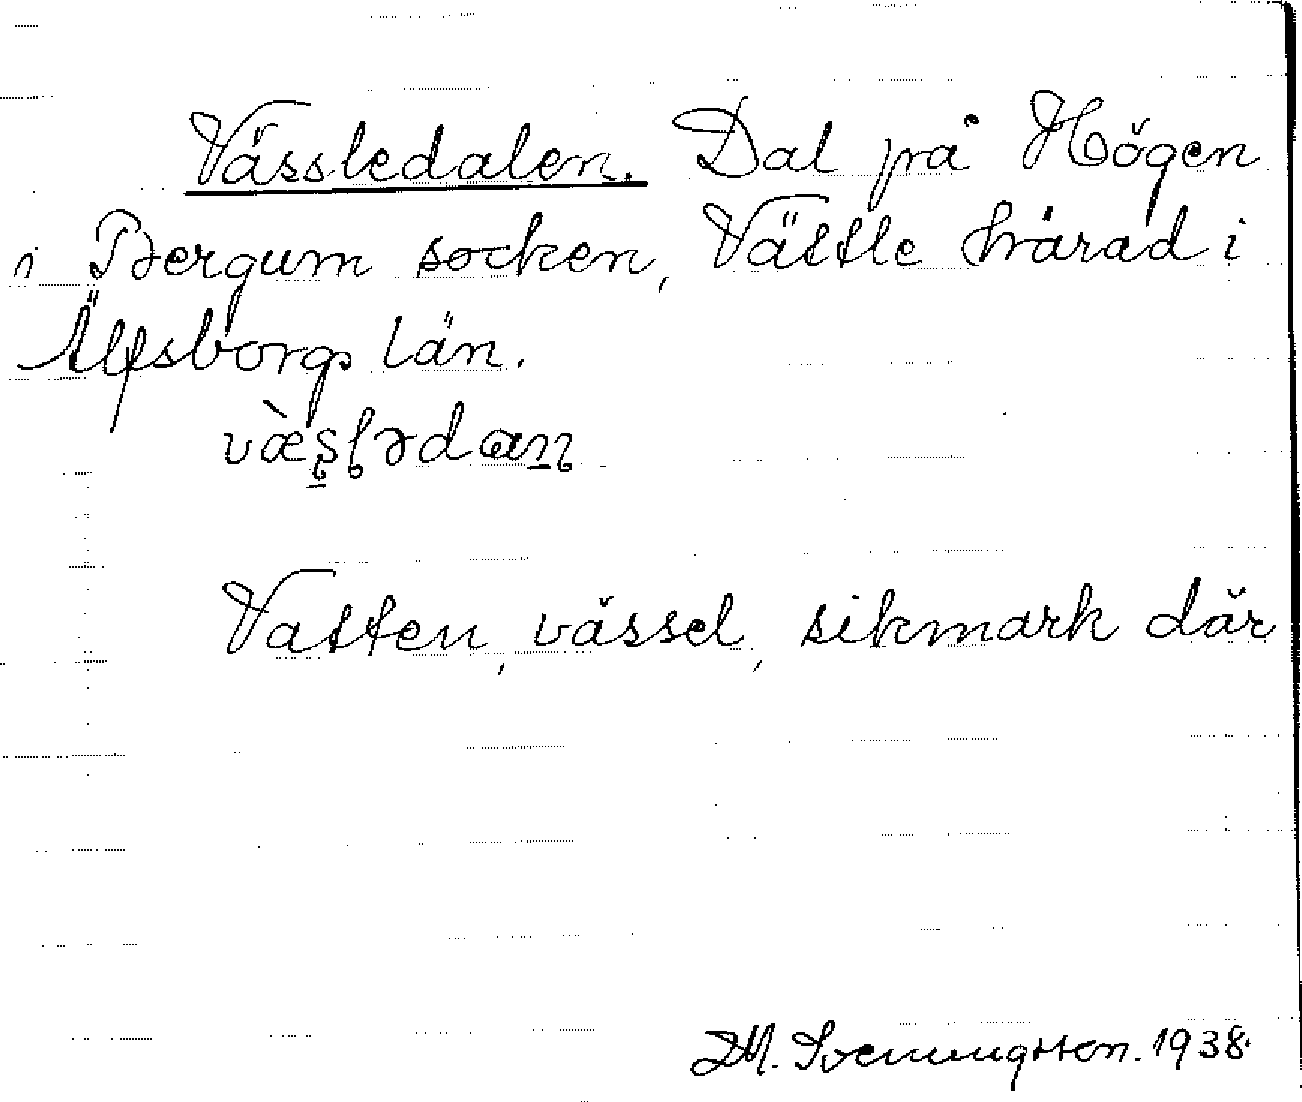 Vässledalen. Dal på Högen
i Bergum socken, Vättle härad i
Älfsborgs län.
væ̀ṣḷədaṇ
Vatten, vässel, sikmark där
M. Svenungsson. 1938.